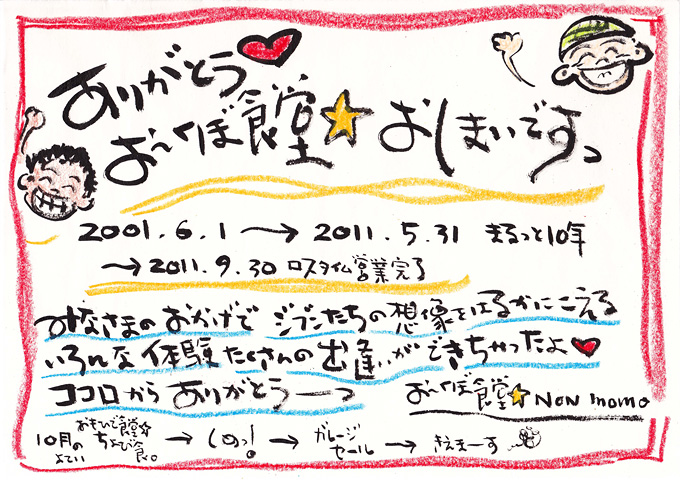 ありがとう
お〜くぼ食堂 おしまいですっ
2001.6.1 → 2011.5.31 まるっと10年
→ 2011.9.30 ロスタイム営業完了
みなさまのおかげで ジブンたちの想像をはるかにこえる
いろんな体験たくさんの出逢いができちゃったよ
ココロから ありがとうーっ
おーくぼ食堂 NON momo
10月のよてい おもいで食堂 ちょび食。 → しめっ! → ガレージセール → きえまーす